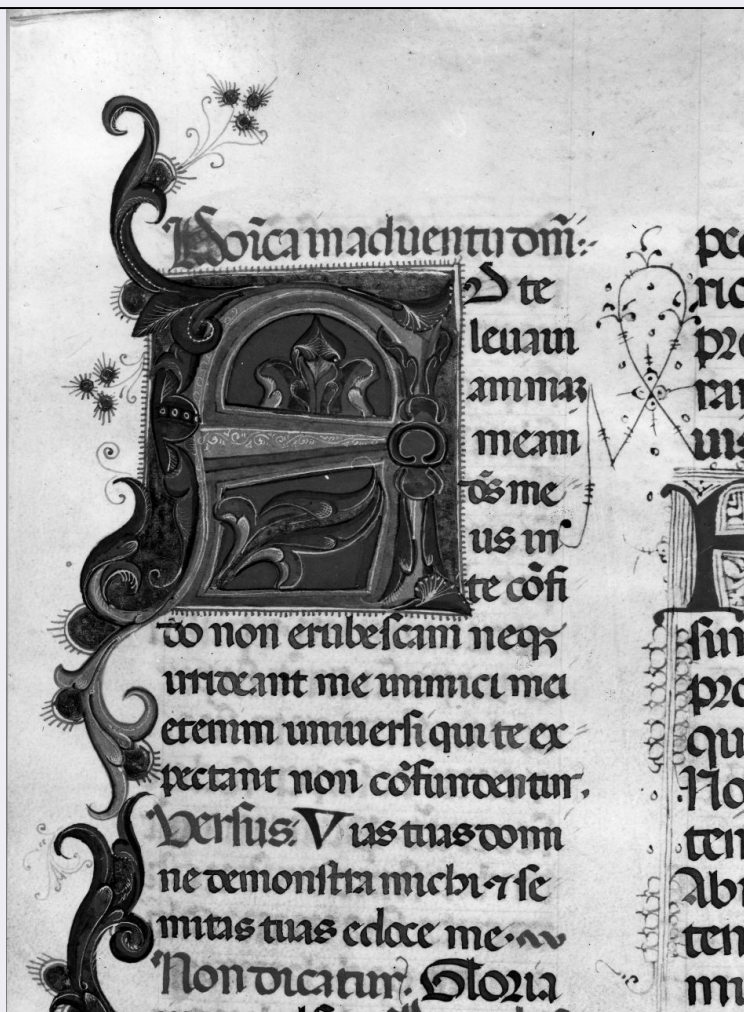 Dñica in aduentu dom̄:
A D te
leuaui
animaʒ
meam
d̄s me
us in
te cōfi
do non erubescam neqꝫ
irrideant me inimici mei
etenim uniuersi qui te ex
pectant non cōfundentur.
Versus. Vias tuas domi
ne demonstra michi ⁊ se
mitas tuas edoce me.
Non dicatur. Gloria
pec
rio
pro
rar
uis
sin
pro
qu
No
ten
Abi
ten
mu